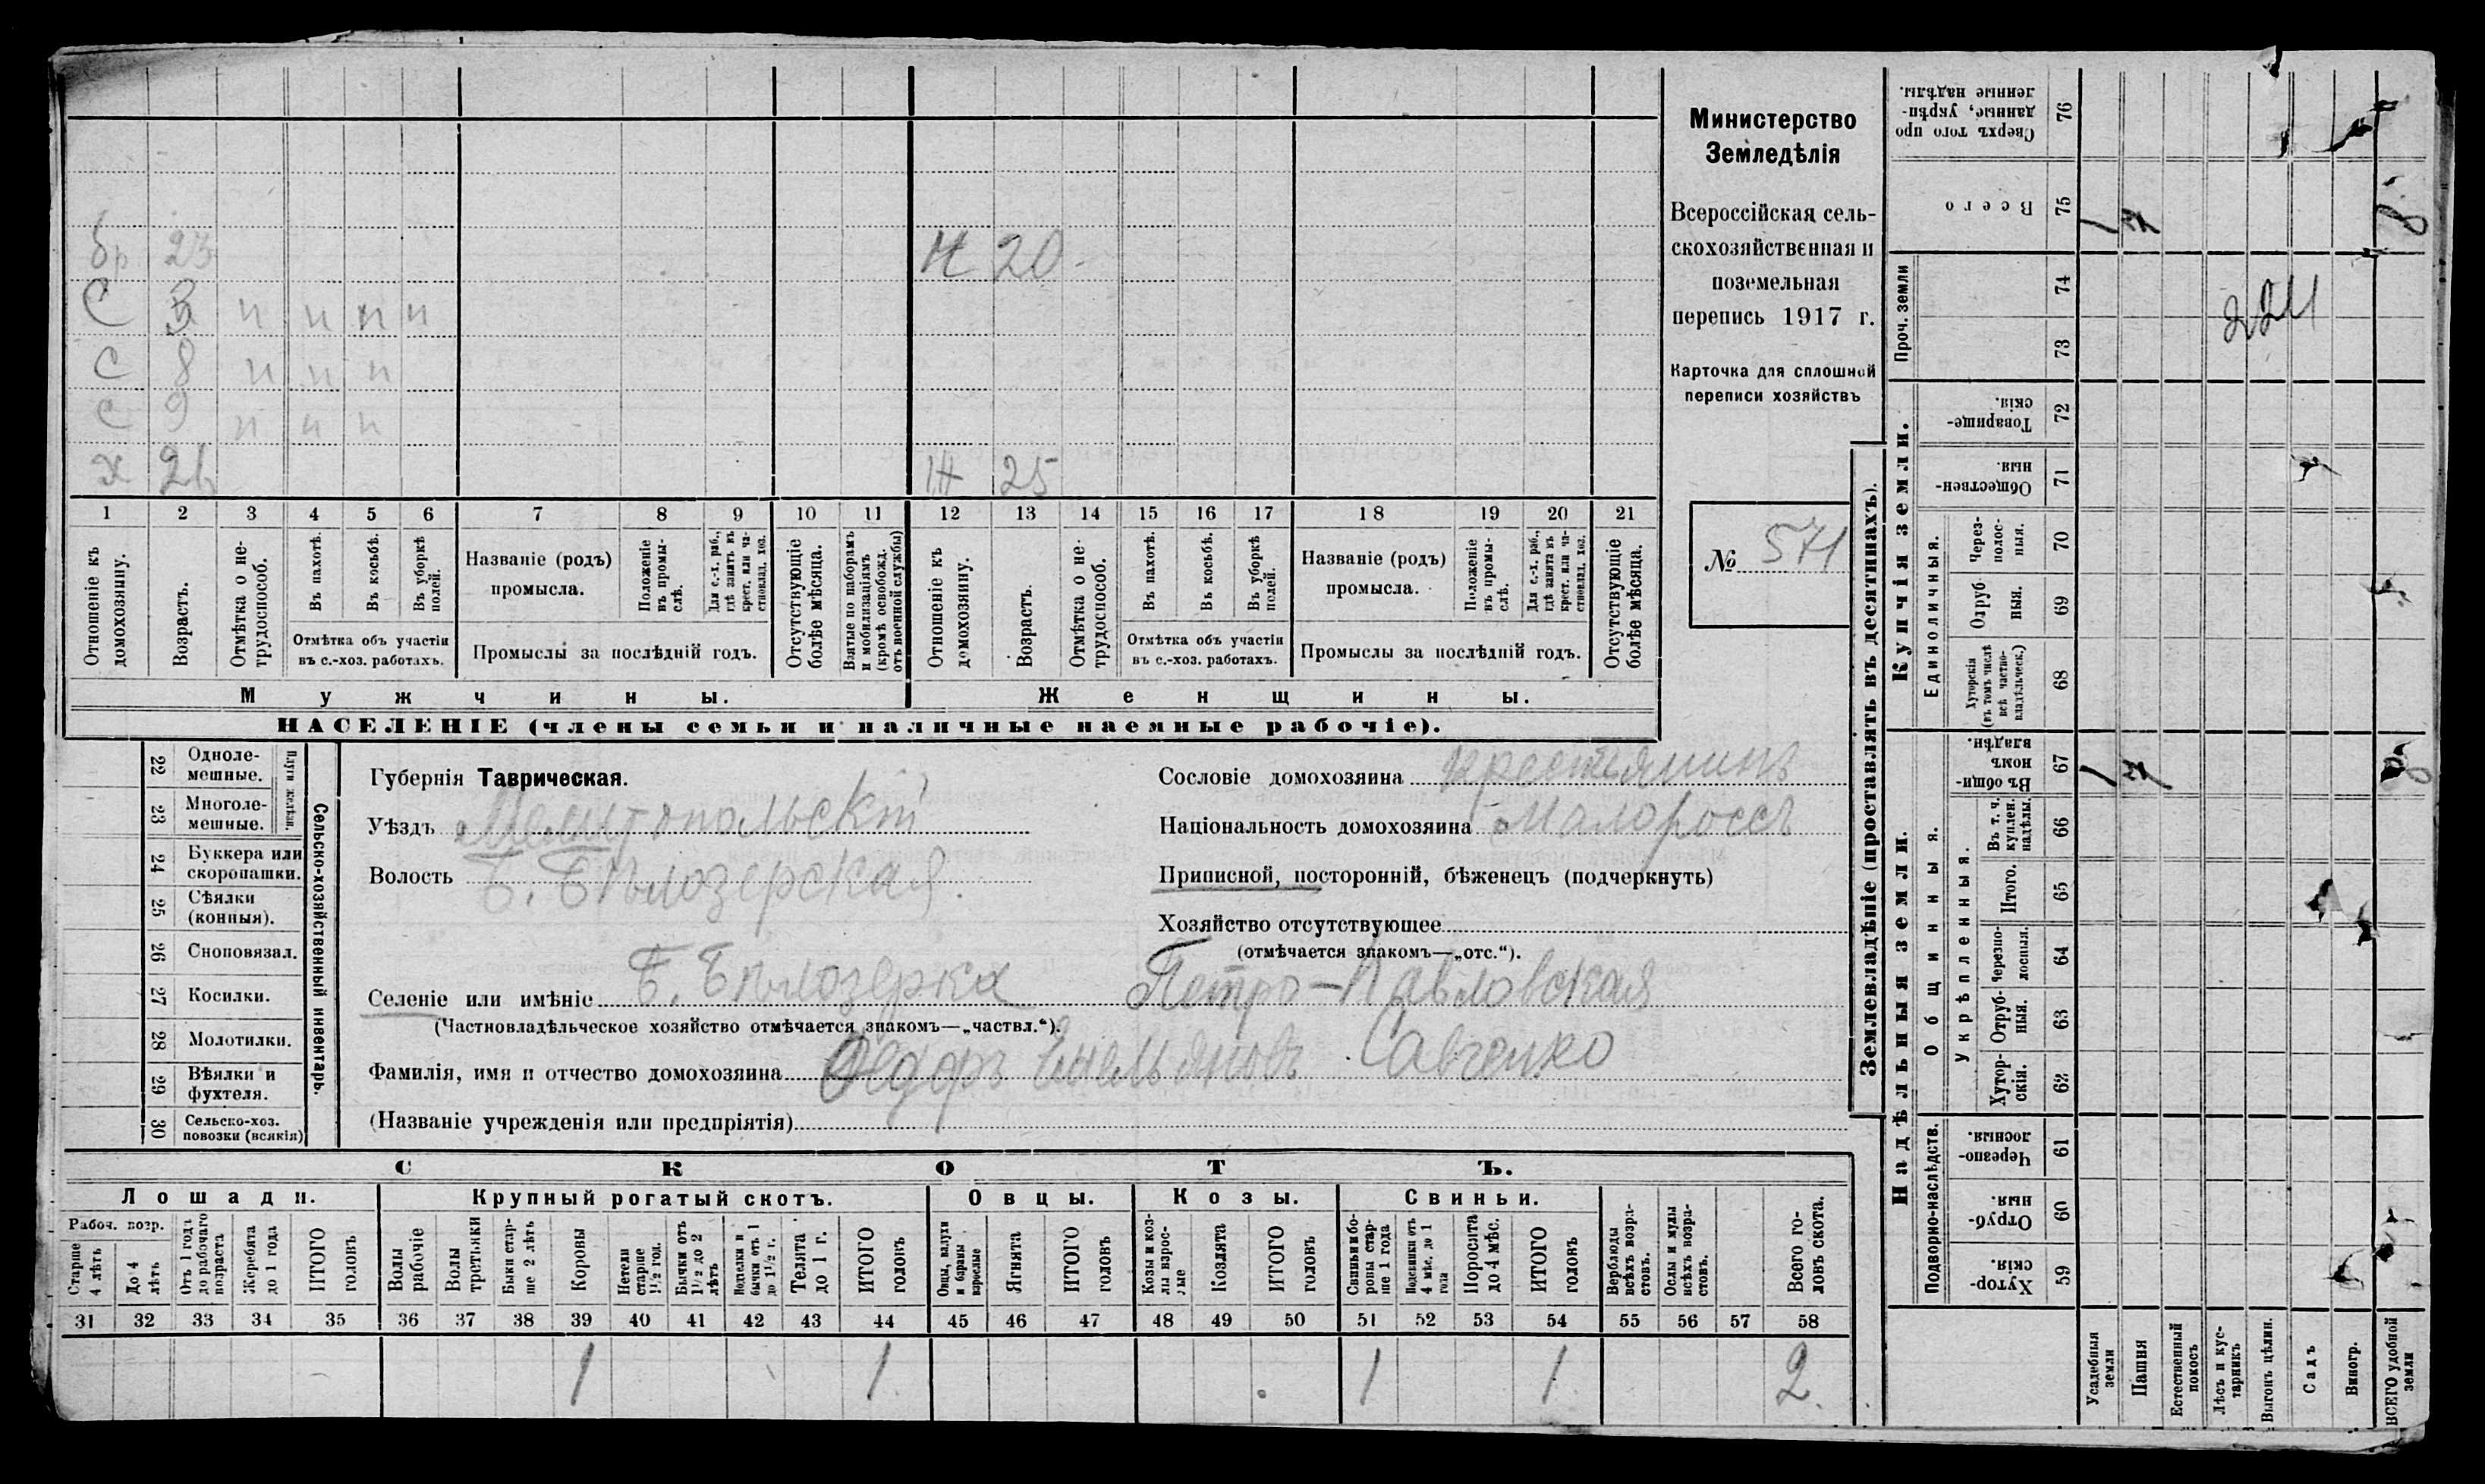 бр 23 Н 20
С 3 н н н н
С 8 н н н
С 9 н н н
Х Ж 25
1 2 3 4 5 6 7 8 9 10 11 12 13 14 15 16 17 18 19 20 21
Отношеніе къ домохозяину.
Возрастъ.
Отмѣтка о нетрудоспособ.
Въ пахотѣ.
Въ косьбѣ.
Въ уборкѣ полей.
Отмѣтка объ участіи
въ с.-хоз. работахъ.
Названіе (родъ)
промысла.
Положеніе въ промыслѣ.
Для с.-х. раб., гдѣ занятъ въ крест. или частновлад. хоз.
Промыслы за послѣдній годъ.
Отсутствующіе болѣе мѣсяца.
Взятые по наборамъ и мобилизаціямъ (кромѣ освобожд. отъ военной службы)
Отношеніе къ домохозяину.
Возрастъ.
Отмѣтка о нетрудоспособ.
Въ пахотѣ.
Въ косьбѣ.
Въ уборкѣ полей.
Отмѣтка объ участіи
въ с.-хоз. работахъ.
Названіе (родъ)
промысла.
Положеніе въ промыслѣ.
Для с.-х. раб., гдѣ занята въ крест. или частновлад. хоз.
Промыслы за послѣдній годъ.
Отсутствующіе болѣе мѣсяца.
Мужчины. Женщины.
НАСЕЛЕНІЕ (члены семьи и наличные наемные рабочіе).
Министерство
Земледѣлія
Всероссійская сель-
скохозяйственная и
поземельная
перепись 1917 г.
Карточка для сплошной
переписи хозяйствъ
№ 571
Сельско-хозяйственный инвентарь.
Плуги желѣзн.
22 Одноле-
мешные.
23 Многоле-
мешные.
24 Буккера или
скоропашки.
25 Сѣялки
(конныя).
26 Сноповязал.
27 Косилки.
28 Молотилки.
29 Вѣялки и
фухтеля.
30 Сельско-хоз.
повозки (всякія)
Губернія Таврическая.
Уѣздъ Мелитопольскій
Волость Б. Бѣлозерская.
Селеніе или имѣніе Б. Бѣлозерка Петро-Павловская
(Частновладѣльческое хозяйство отмѣчается знакомъ—„частвл.“).
Фамилія, имя и отчество домохозяина Федоръ Емельяновъ Савченко
(Названіе учрежденія или предпріятія)
Сословіе домохозяина крестьянинъ
Національность домохозяина Малороссъ
Приписной, посторонній, бѣженецъ (подчеркнуть)
Хозяйство отсутствующее
(отмѣчается знакомъ—„отс.“).
СКОТЪ.
Лошади. Крупный рогатый скотъ. Овцы. Козы. Свиньи.
Рабоч. возр.
Старше 4 лѣтъ
До 4 лѣтъ
Отъ 1 года до рабочаго возраста
Жеребята до 1 года
ИТОГО головъ
Волы рабочіе
Волы третьяки
Быки старше 2 лѣтъ
Коровы
Нетели старше 1½ год.
Бычки отъ 1½ до 2 лѣтъ
Подтелки и бычки отъ 1 до 1½ г.
Телята до 1 г.
ИТОГО головъ
Овцы, валухи и бараны взрослые
Ягнята
ИТОГО головъ
Козы и козлы взрослые
Козлята
ИТОГО головъ
Свиньи и боровы старше 1 года
Подсвинки отъ 4 мѣс. до 1 года
Поросята до 4 мѣс.
ИТОГО головъ
Верблюды всѣхъ возрастовъ.
Ослы и мулы всѣхъ возрастовъ.
Всего головъ скота.
31 32 33 34 35 36 37 38 39 40 41 42 43 44 45 46 47 48 49 50 51 52 53 54 55 56 57 58
1 1 1 1 2
Землевладѣніе (проставлять въ десятинахъ).
Надѣльныя земли. Купчія земли. Проч. земли
Подворно-наслѣдств.
Общинныя.
Укрѣпленныя.
Единоличныя.
Хуторскія. 59
Отрубныя. 60
Черезполосныя. 61
Хуторскія. 62
Отрубныя. 63
Черезполосныя. 64
Итого. 65
Въ т. ч. куплен. надѣлы. 66
Въ общинномъ владѣн. 67
Хуторскія (въ томъ числѣ всѣ частновладѣльческ.) 68
Отрубныя. 69
Черезполосныя. 70
Общественныя. 71
Товарищескія. 72
73
74
Всего 75
Сверхъ того проданные, укрѣпленные надѣлы. 76
Усадебныя земли
Пашня
Естественный покосъ
Лѣсъ и кустарникъ
Выгонъ цѣлин.
Садъ
Виногр.
ВСЕГО удобной земли
1 7 8
1 7 8
224